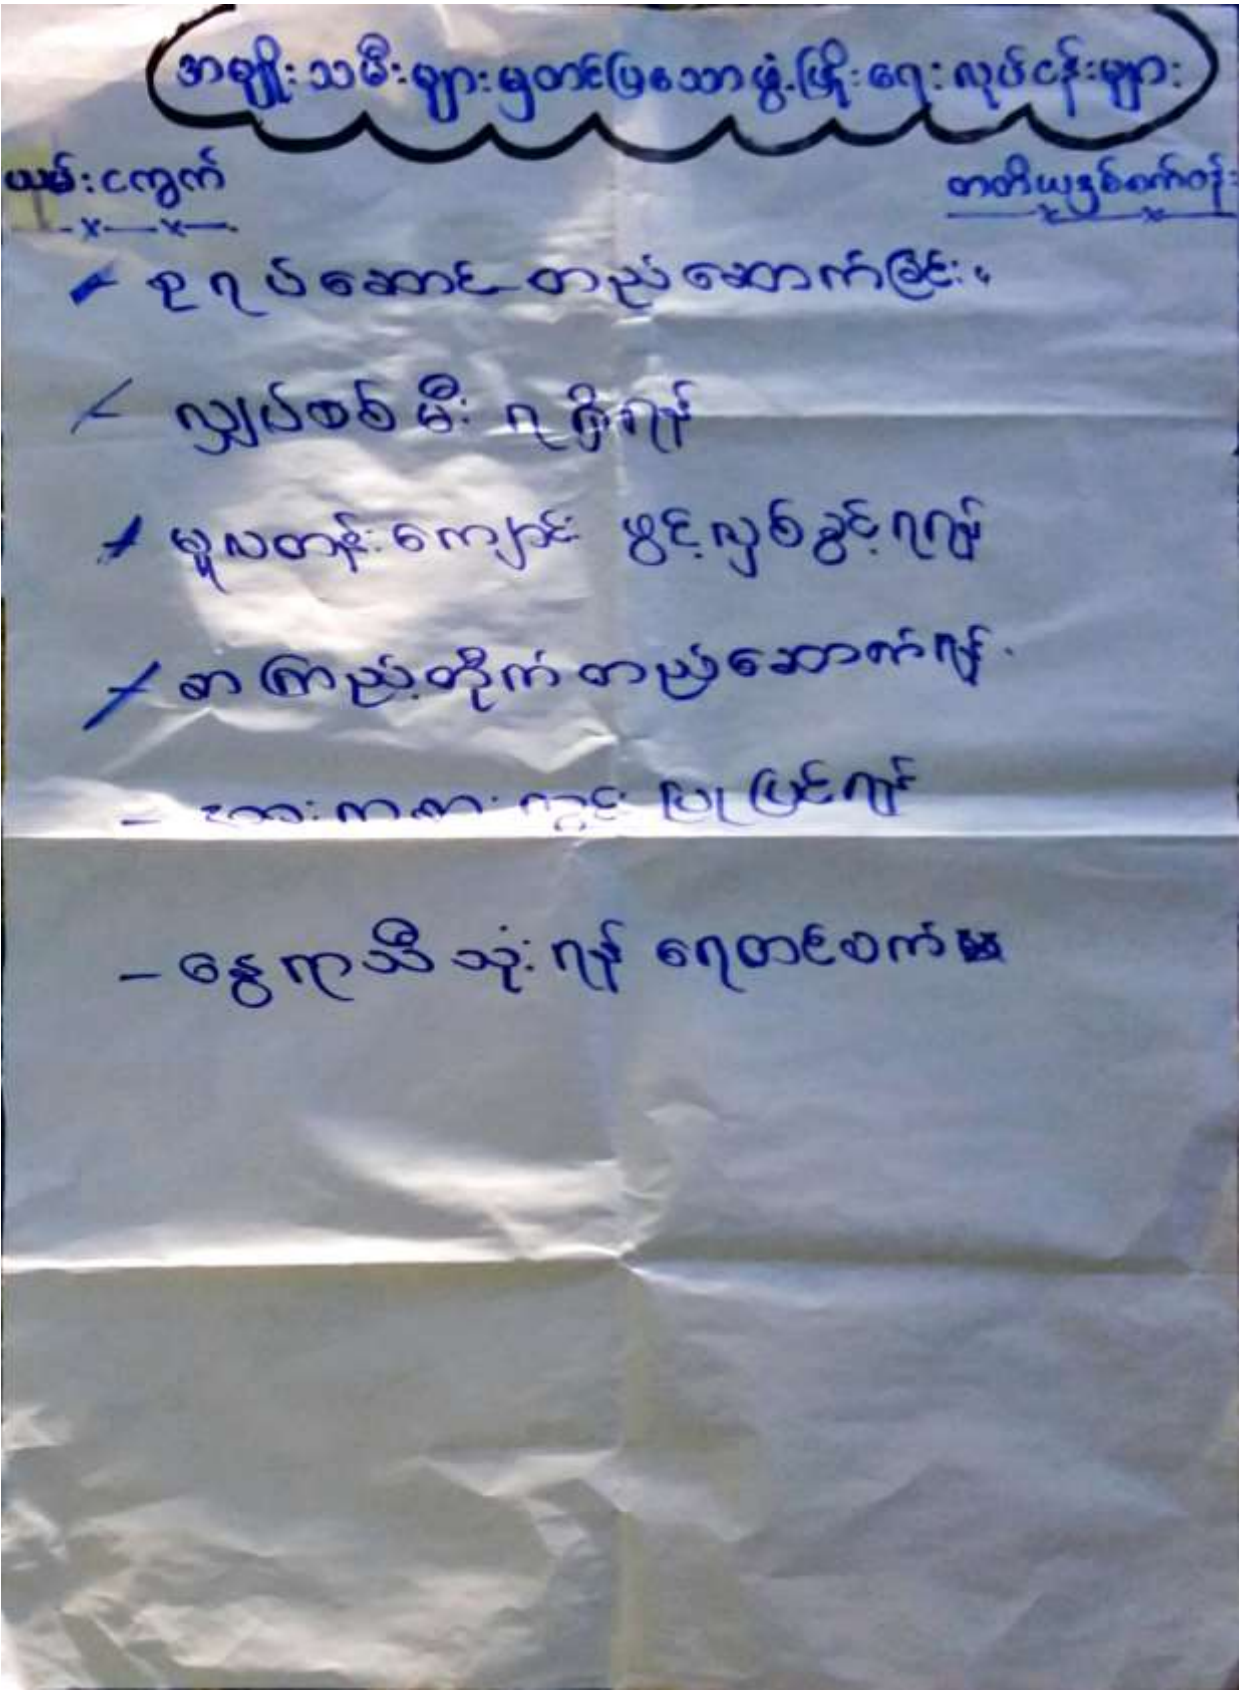 အမျိုးသမီးများမှတင်ပြသောဖွံ့ဖြိုးရေးလုပ်ငန်းများ
ယမ်းငကွက် တတိယနှစ်စက်ဝန်း
စုရပ်ဆောင် တည်ဆောက်ခြင်း။
လျှပ်စစ် မီး ရရှိရန်
မူလတန်းကျောင်း ဖွင့်လှစ်ခွင့်ရရန်
စာကြည့်တိုက်တည်ဆောက်ရန်.
- အားကစားကွင်း ပြုပြင်ရန်
- နွေရာသီ သုံးရန် ရေတင်စက်